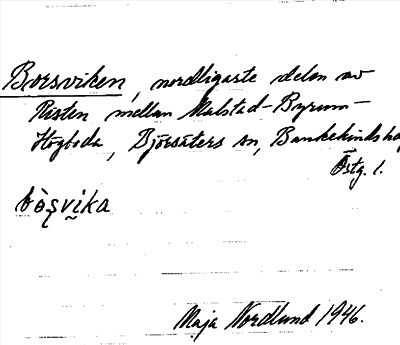 Borsviken, nordligaste delen av
Risten mellan Malstad-Byrum-
Högboda, Björsäters sn, Bankekinds ha
Östg. l.
bòșvika
Maja Nordlund 1946.